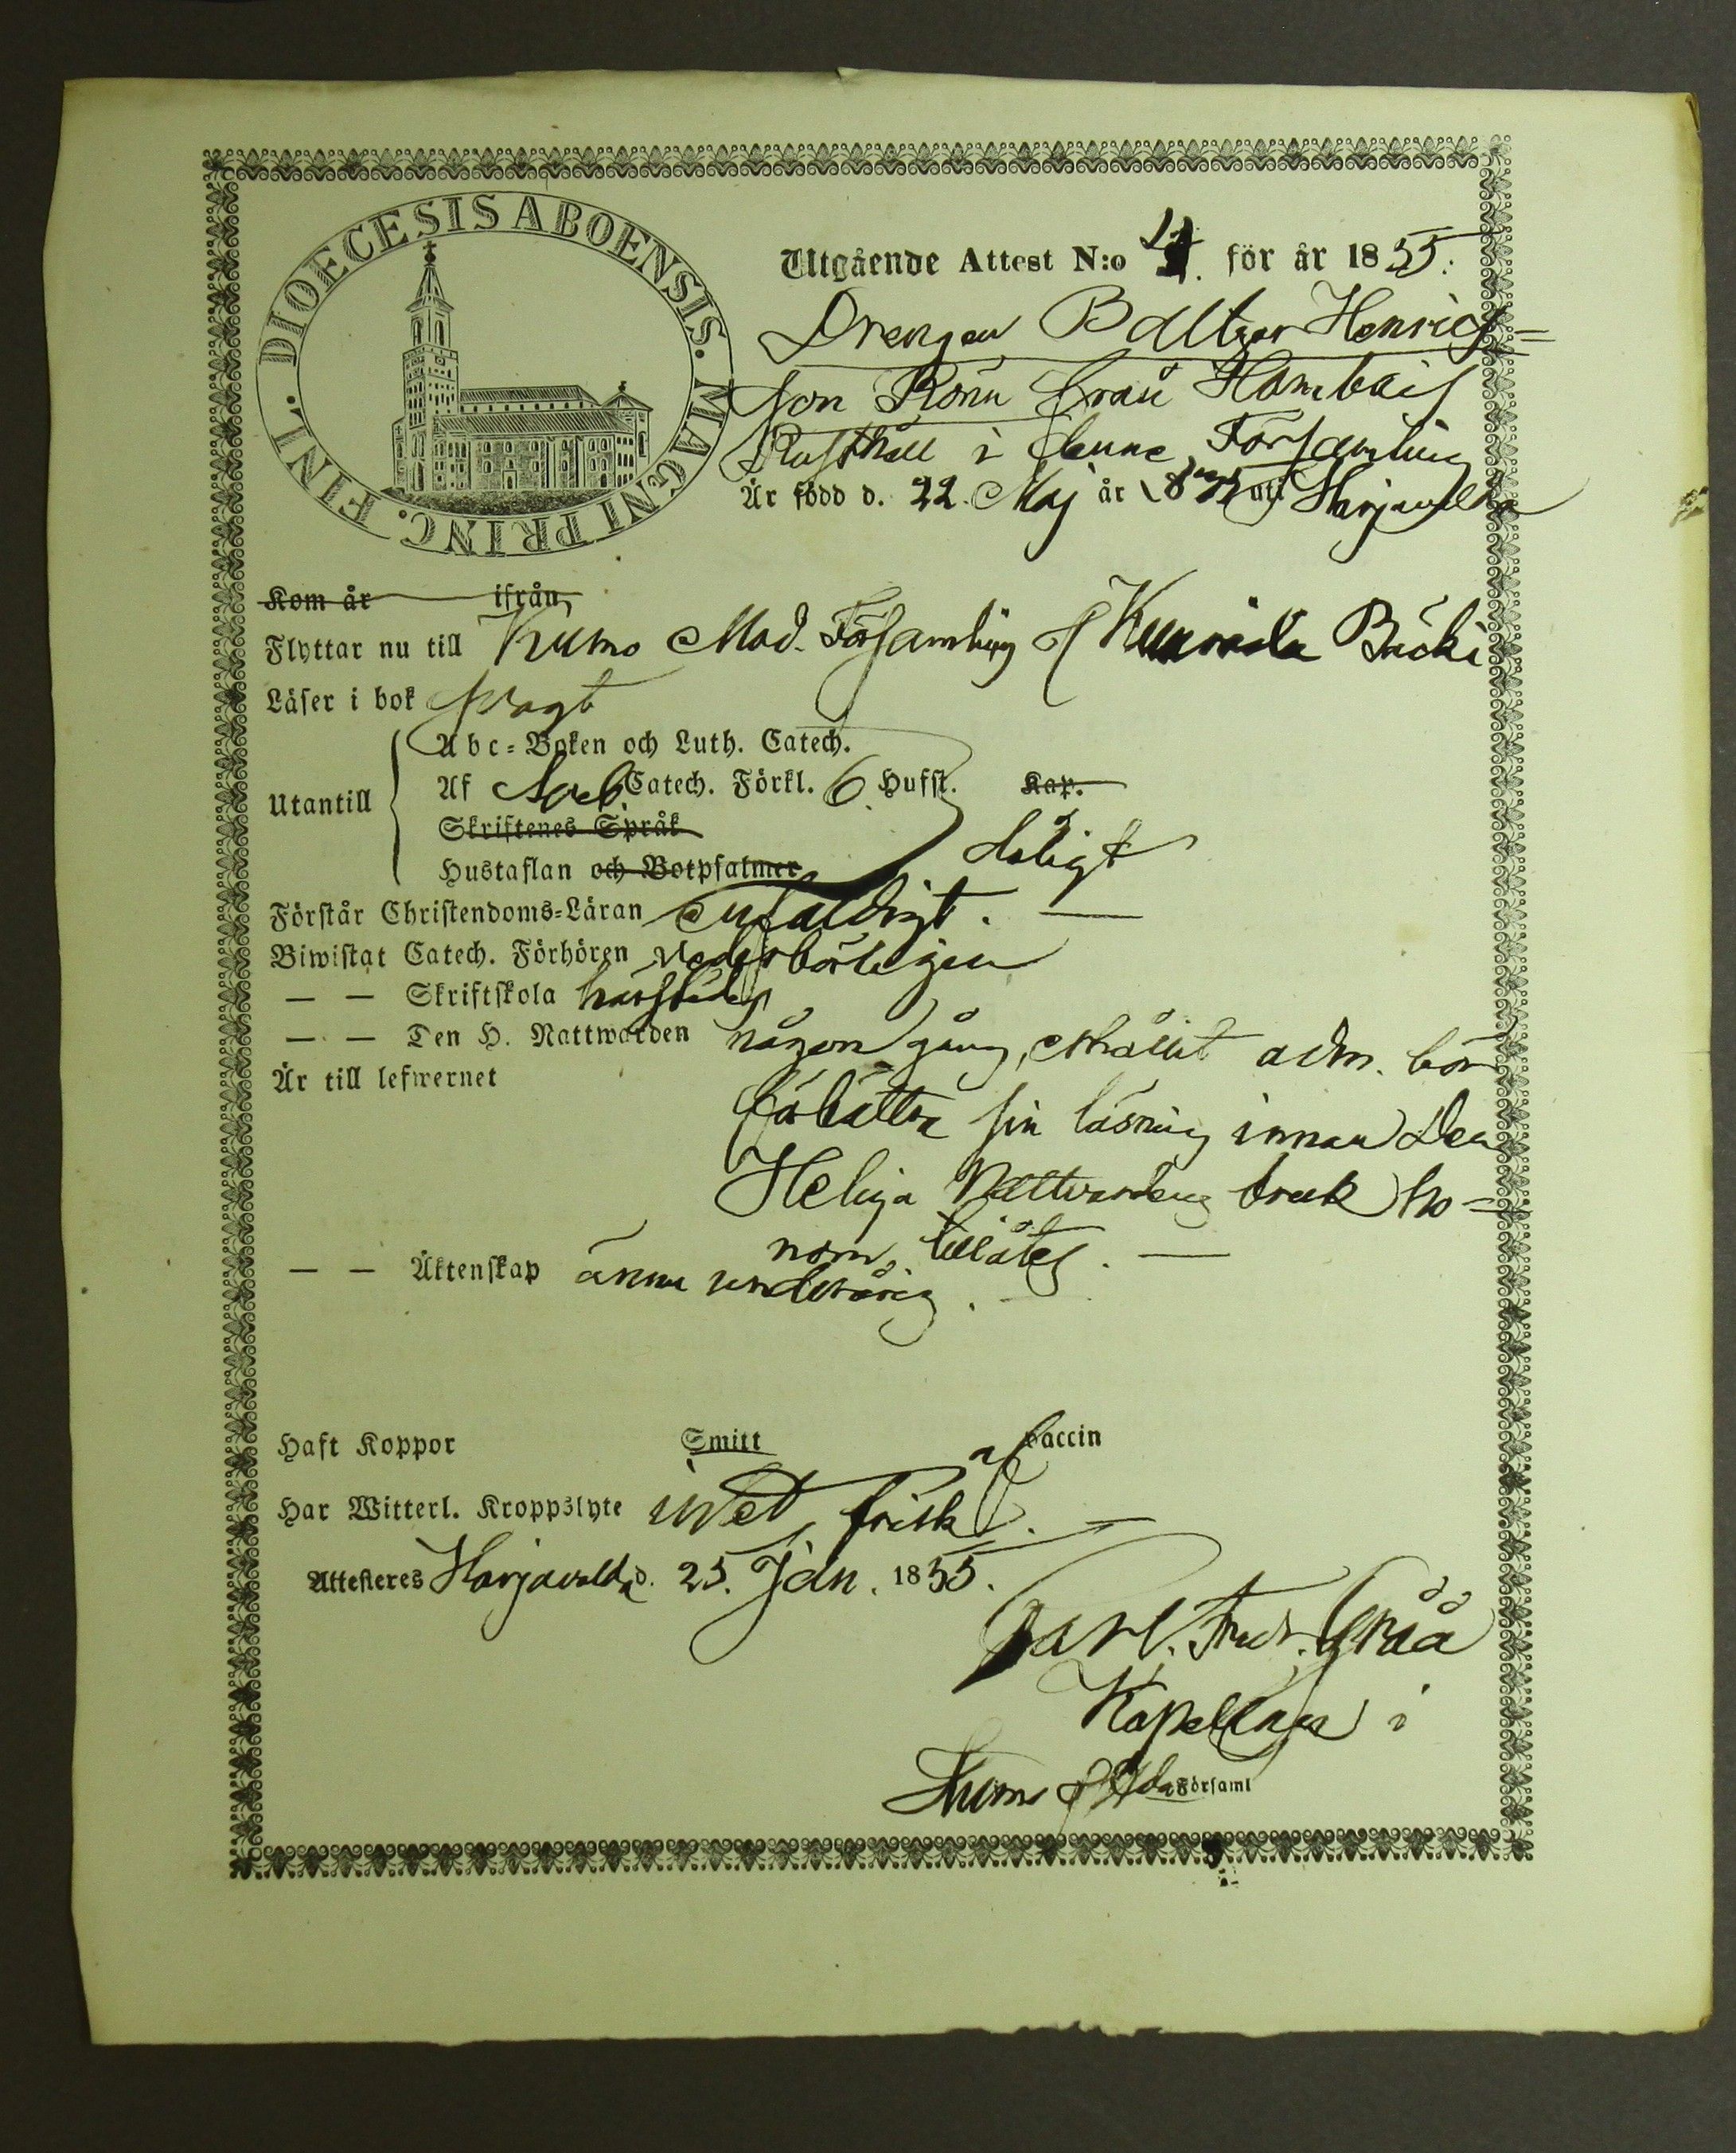 DIOECESIS ABOENSIS. MAGNI PRINC. FINL.
Utgående Attest N:o 4. för år 1855.
Drengen Baltzar Henrics=
son Rönn från Hambais
Rusthåll i denna Församling
Är född d. 22. Maj år 18 uti Harjavalda
Kom år ifrån
Flyttar nu till Kumo Mod. Församling Bäcki
Läser i bok svagt
Utantill
Abc=Boken och Luth. Catech.
Af Sveb. Catech. Förkl. 6 Hufst. Kap.
Skriftenes Språk
Hustaflan och Botpsalmer dåligt
Förstår Christendoms=Läran enfaldigt.
Biwistat Catech. Förhören vederbörligen
— — Skriftskola härstädes
— — Den H. Nattwarden någon gång, erhållit adm. bör
Är till lefwernet
förbättra sin läsning innan Den
Heliga Nattvardens bruk ho=
nom tillåtes.
— — Äktenskap ännu underårig.
Haft Koppor Smitt af Vaccin
Har Witterl. Kroppslyte frisk.
Attesteres Harjavalda d. 25. Jan. 1855.
Carl. Fredr. Gråå
Kapellan i
Kumo Församl